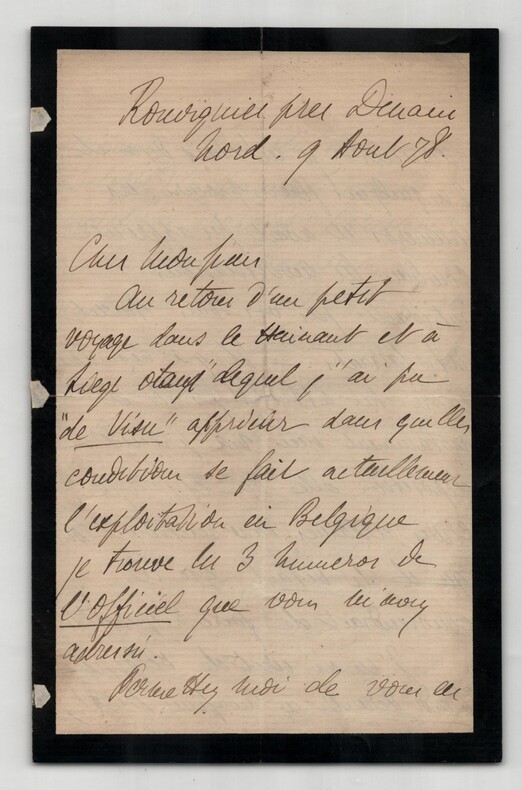 Rouvignies pres Denain
Nord. 9 Aout 78.
Cher Monsieur
Au retour d'un petit
voyage dans le Hainaut et à
Liège lequel j'ai pu
"de Visu" apprécier dans quelles
conditions se fait actuellement
l'exploitation en Belgique
je trouve les 3 numeros de
l'Officiel que vous m'avez
adressé.
Permettez moi de vous en